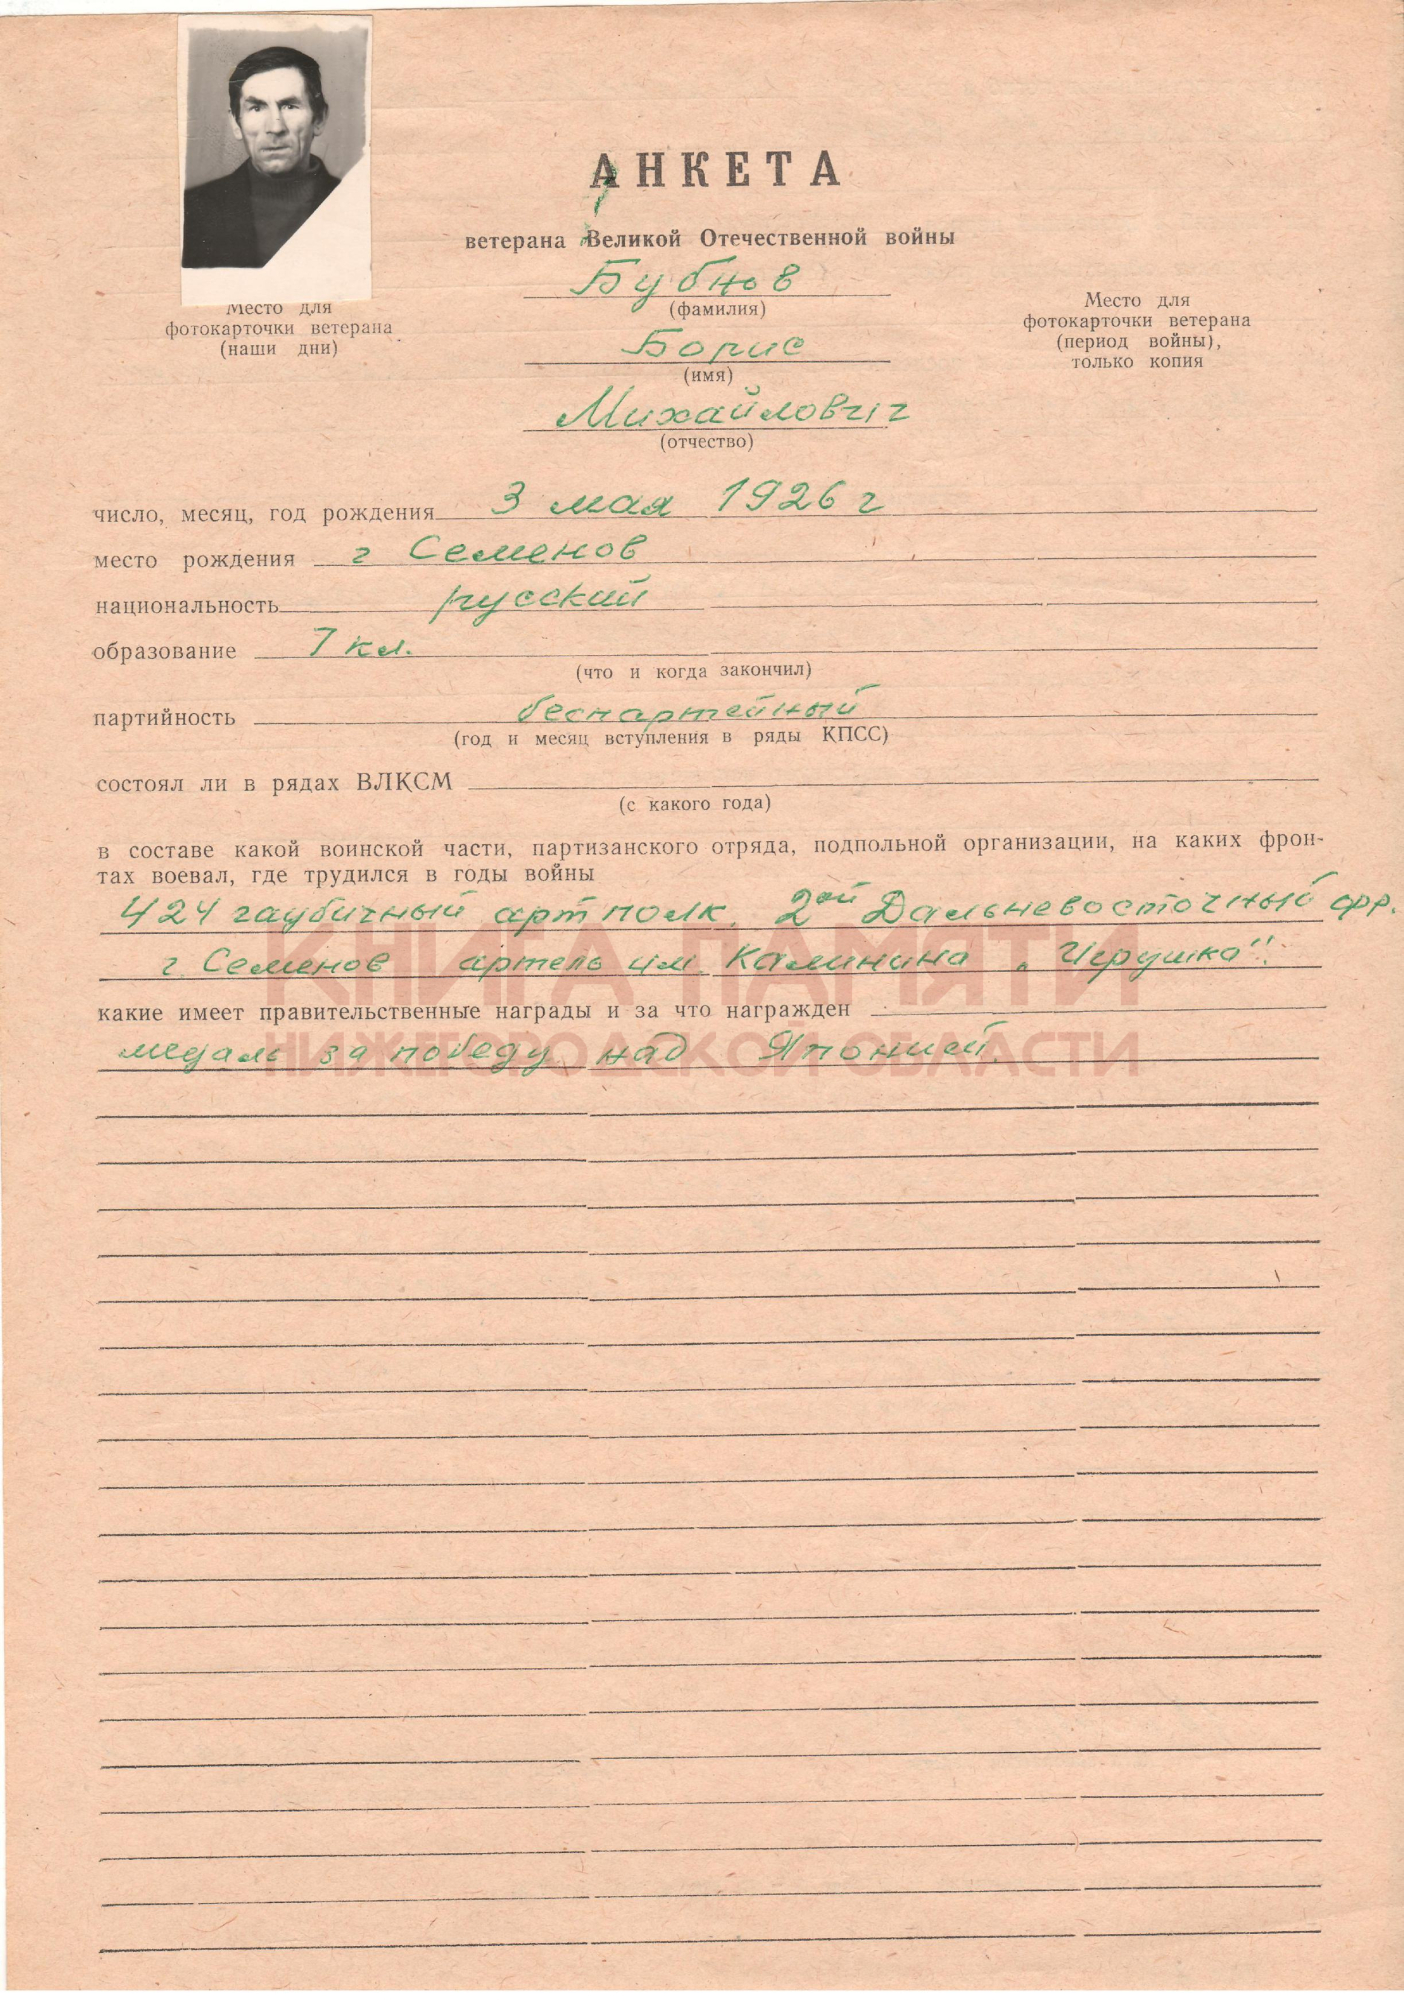 АНКЕТА
ветерана Великой Отечественной войны
Бубнов
(фамилия)
Борис
(имя)
Михайлович
(отчество)
Место для
фотокарточки ветерана
(наши дни)
Место для
фотокарточки ветерана
(период войны),
только копия
число, месяц, год рождения 3 мая 1926 г
место рождения г Семенов
национальность русский
образование 7 кл.
(что и когда закончил)
партийность беспартейный
(год и месяц вступления в ряды КПСС)
состоял ли в рядах ВЛКСМ
(с какого года)
в составе какой воинской части, партизанского отряда, подпольной организации, на каких фрон-
тах воевал, где трудился в годы войны
424 гаубичный арт полк. 2ой Дальневосточный фр.
г. Семенов артель им. Калинина „Игрушка".
КНИГА ПАМЯТИ
какие имеет правительственные награды и за что награжден
медаль за победу над Японией.
НИЖЕГОРОДСКОЙ ОБЛАСТИ